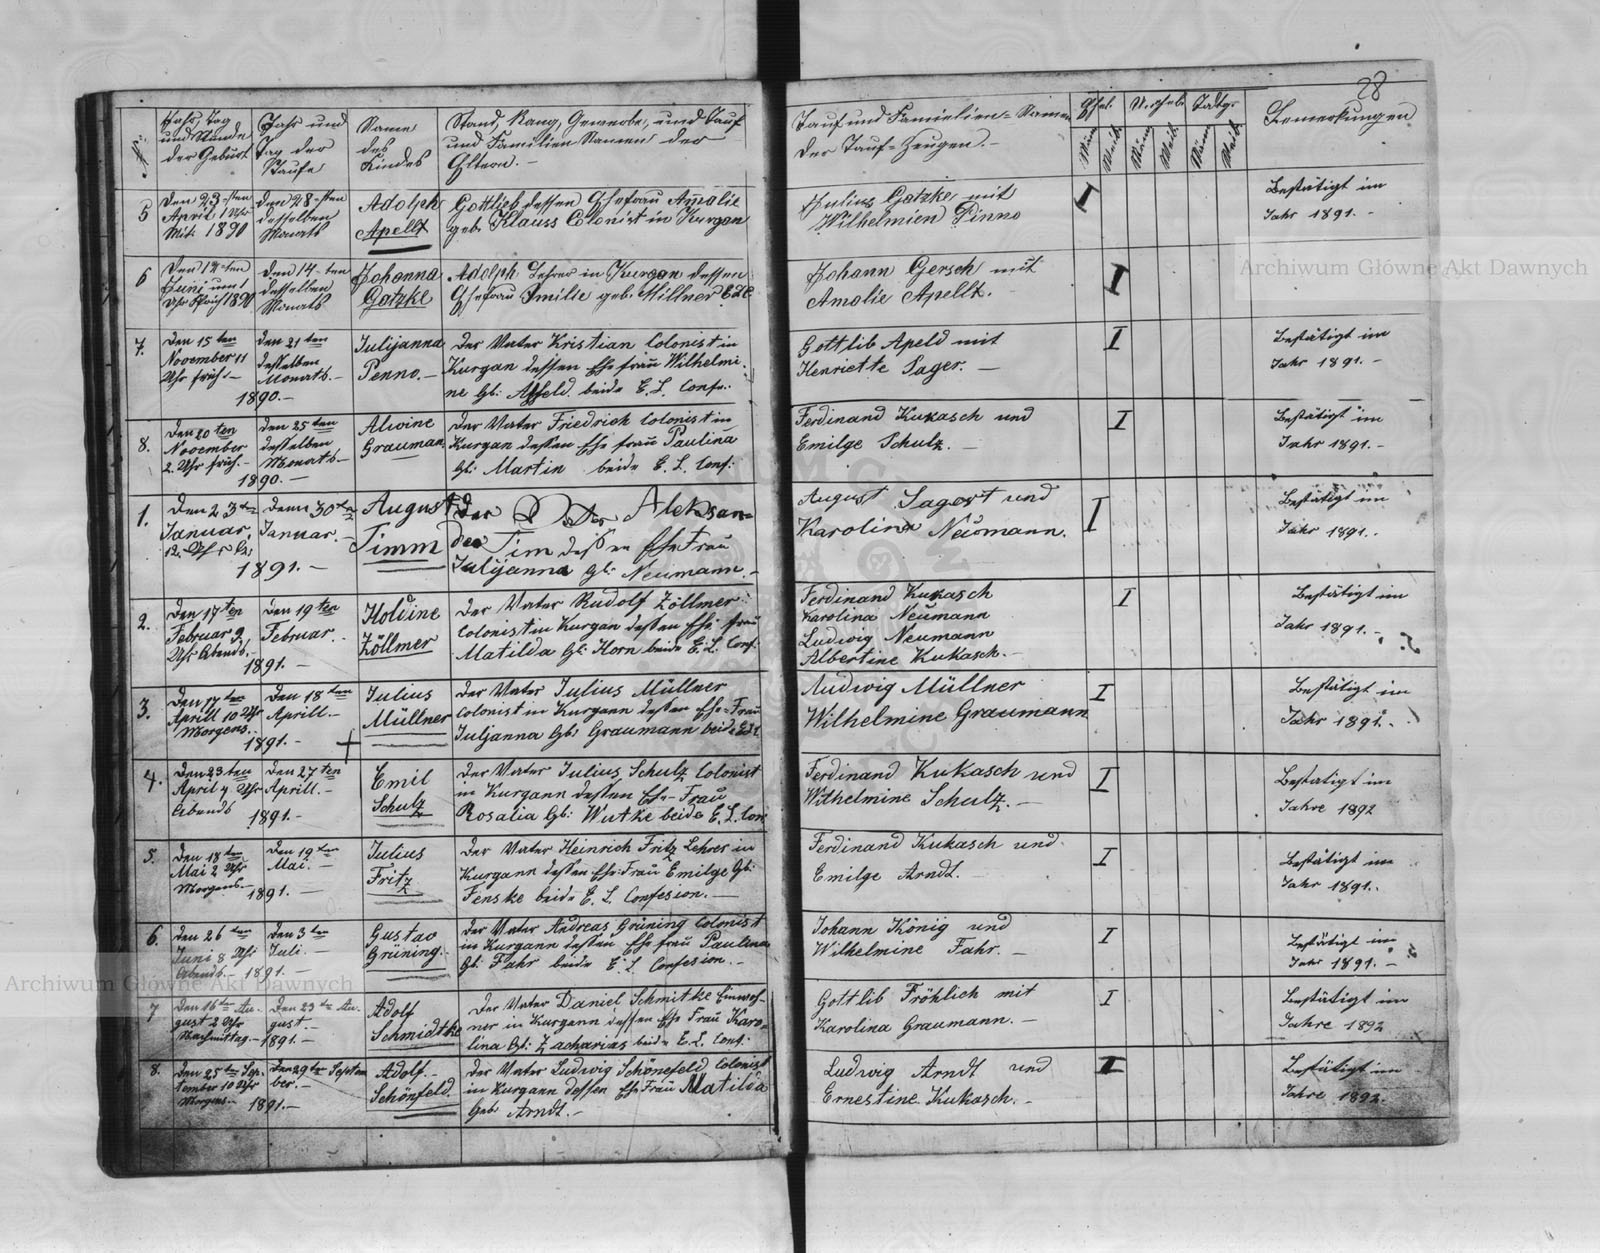 28
No:
Jahr, Tag
und Stunde
der Geburt
Jahr und
Tag der
Taufe
Name
des
Kindes
Stand, Rang, Gewerbe, und Tauf
und Familien Namen der
Eltern. –
Tauf und Familien-Namen
der Tauf-Zeugen. –
Ehel.
Unehel.
Todtg.
Män.
Weib.
Män.
Weib.
Män.
Weib.
Bemerkungen
5
Den 23-sten
April 1 Uhr
Mit: 1890
Den 28-sten
desselben
Monats
Adolph
Apellt
Gottlieb dessen Ehefrau Amalie
geb. Klauss Colonist in Kurgan
Julius Gatzke mit
Wilhelmien Pinno
I
Bestätigt im
Jahr 1891. –
6
Den 12-ten
Juni um 1
Uhr Früh 1890
Den 14-ten
desselben
Monats
Johanna
Gatzke
Adolph Lehrer in Kurgan dessen
Ehefrau Emilie geb. Millner
Johann Gersch mit
Amalie Apellt.
I
7.
Den 15ten
November 11
Uhr früh –
Den 21ten
desselben
Monats. –
1890. –
Julijanna
Penno. –
Der Vater Kristian Colonist in
Kurgan dessen Ehe frau Wilhelmi-
ne Gb: Affeld. beide E. L. Conf.:
Gottlib Apeld mit
Henriette Sager. –
I
Bestätigt im
Jahr 1891. –
8.
Den 20ten
November
2. Uhr früh. –
Den 25ten
desselben
Monats –
1890. –
Alwine
Grauman.
Der Vater Friedrich Colonist in
Kurgan dessen Ehe frau Paulina
Gb: Martin beide E. L. Conf:
Ferdinand Kukasch und
Emilge Schulz. –
I
Bestätigt im
Jahr 1891. –
1.
Den 23ten
Januar.
12. Uhr
Denn 30ten
Januar.
1891. –
August
Timm
Der Vater Aleksan-
der Tim dessen Ehe Frau
Julijanna Gb: Neumann. –
August Sagert und
Karolina Neumann.
I
Bestätigt im
Jahr 1891..
2.
Den 17ten
Februar 9
Uhr Abends. –
Den 19ten
Februar.
1891. –
Holdine
Zöllmer
Der Vater Rudolf Zöllmer
Colonist in Kurgan dessen Ehe frau
Matilda Gb: Horn beide E. L. Conf.
Ferdinand Kukasch
Karolina Neumann
Ludwig Neumann
Albertine Kukasch. –
I
Bestätigt im
Jahr 1891. –
3.
Den 17ten
Aprill 10 Uhr
Morgens.
Den 18ten
Aprill. –
1891. –
Julius
Müllner
Der Vater Julius Müllner
Colonist in Kurgann dessen Ehe-Frau
Juljanna Gb: Graumann beide
Ludwig Müllner
Wilhelmine Graumann
I
Bestätigt im
Jahr 1891. –
4.
Den 23ten
April 7 Uhr
Abends
Den 27ten
Aprill. –
1891. –
Emil
Schulz
Der Vater Julius Schulz Colonist
in Kurgann dessen Ehe-Frau
Rosalia Gb: Wutke beide E. L. Con
Ferdinand Kukasch und
Wilhelmine Schulz. –
I
Bestätigt im
Jahre 1892
5.
Den 18ten
Mai 2 Uhr
Morgens. –
Den 19ten
Mai. –
1891. –
Julius
Fritz
Der Vater Heinrich Fritz Lehrer in
Kurgann dessen Ehe Frau Emilge Gb:
Fenske beide E. L. Confesion. –
Ferdinand Kukasch und
Emilge Arndt. –
I
Bestätigt im
Jahr 1891..
6.
Den 26ten
Juni 8 Uhr
Abends. –
Den 3ten
Juli. –
1891. –
Gustav
Grüning.
Der Vater Andreas Grüning Colonist
in Kurgann dessen Ehe frau Paulina
Gb: Fahr beide E. L. Confesion. –
Johann König und
Wilhelmine Fahr. –
I
Bestätigt im
Jahr 1891. –
7
Den 16ten Au-
gust 2 Uhr
Nachmittag. –
Den 23ten Au-
gust. –
1891. –
Adolf
Schmidtke
Der Vater Daniel Schmitke Einwoh-
ner in Kurgann dessen Ehe Frau Karo-
lina Gb: Zacharias beide E. L. Conf:
Gottlib Fröhlich mit
Karolina Graumann. –
I
Bestätigt im
Jahre 1892
8.
Den 25ten Sep-
tember 10 Uhr
Morgens. –
Den 29ten Septem
ber. –
1891. –
Adolf. –
Schönfeld.
Der Vater Ludwig Schönefeld Colonist
in Kurgann dessen Ehe Frau Matilda
Geb: Arndt. –
Ludwig Arndt und
Ernestine Kukasch. –
I
Bestätigt im
Jahre 1892.
Archiwum Główne Akt Dawnych
Archiwum Główne Akt Dawnych